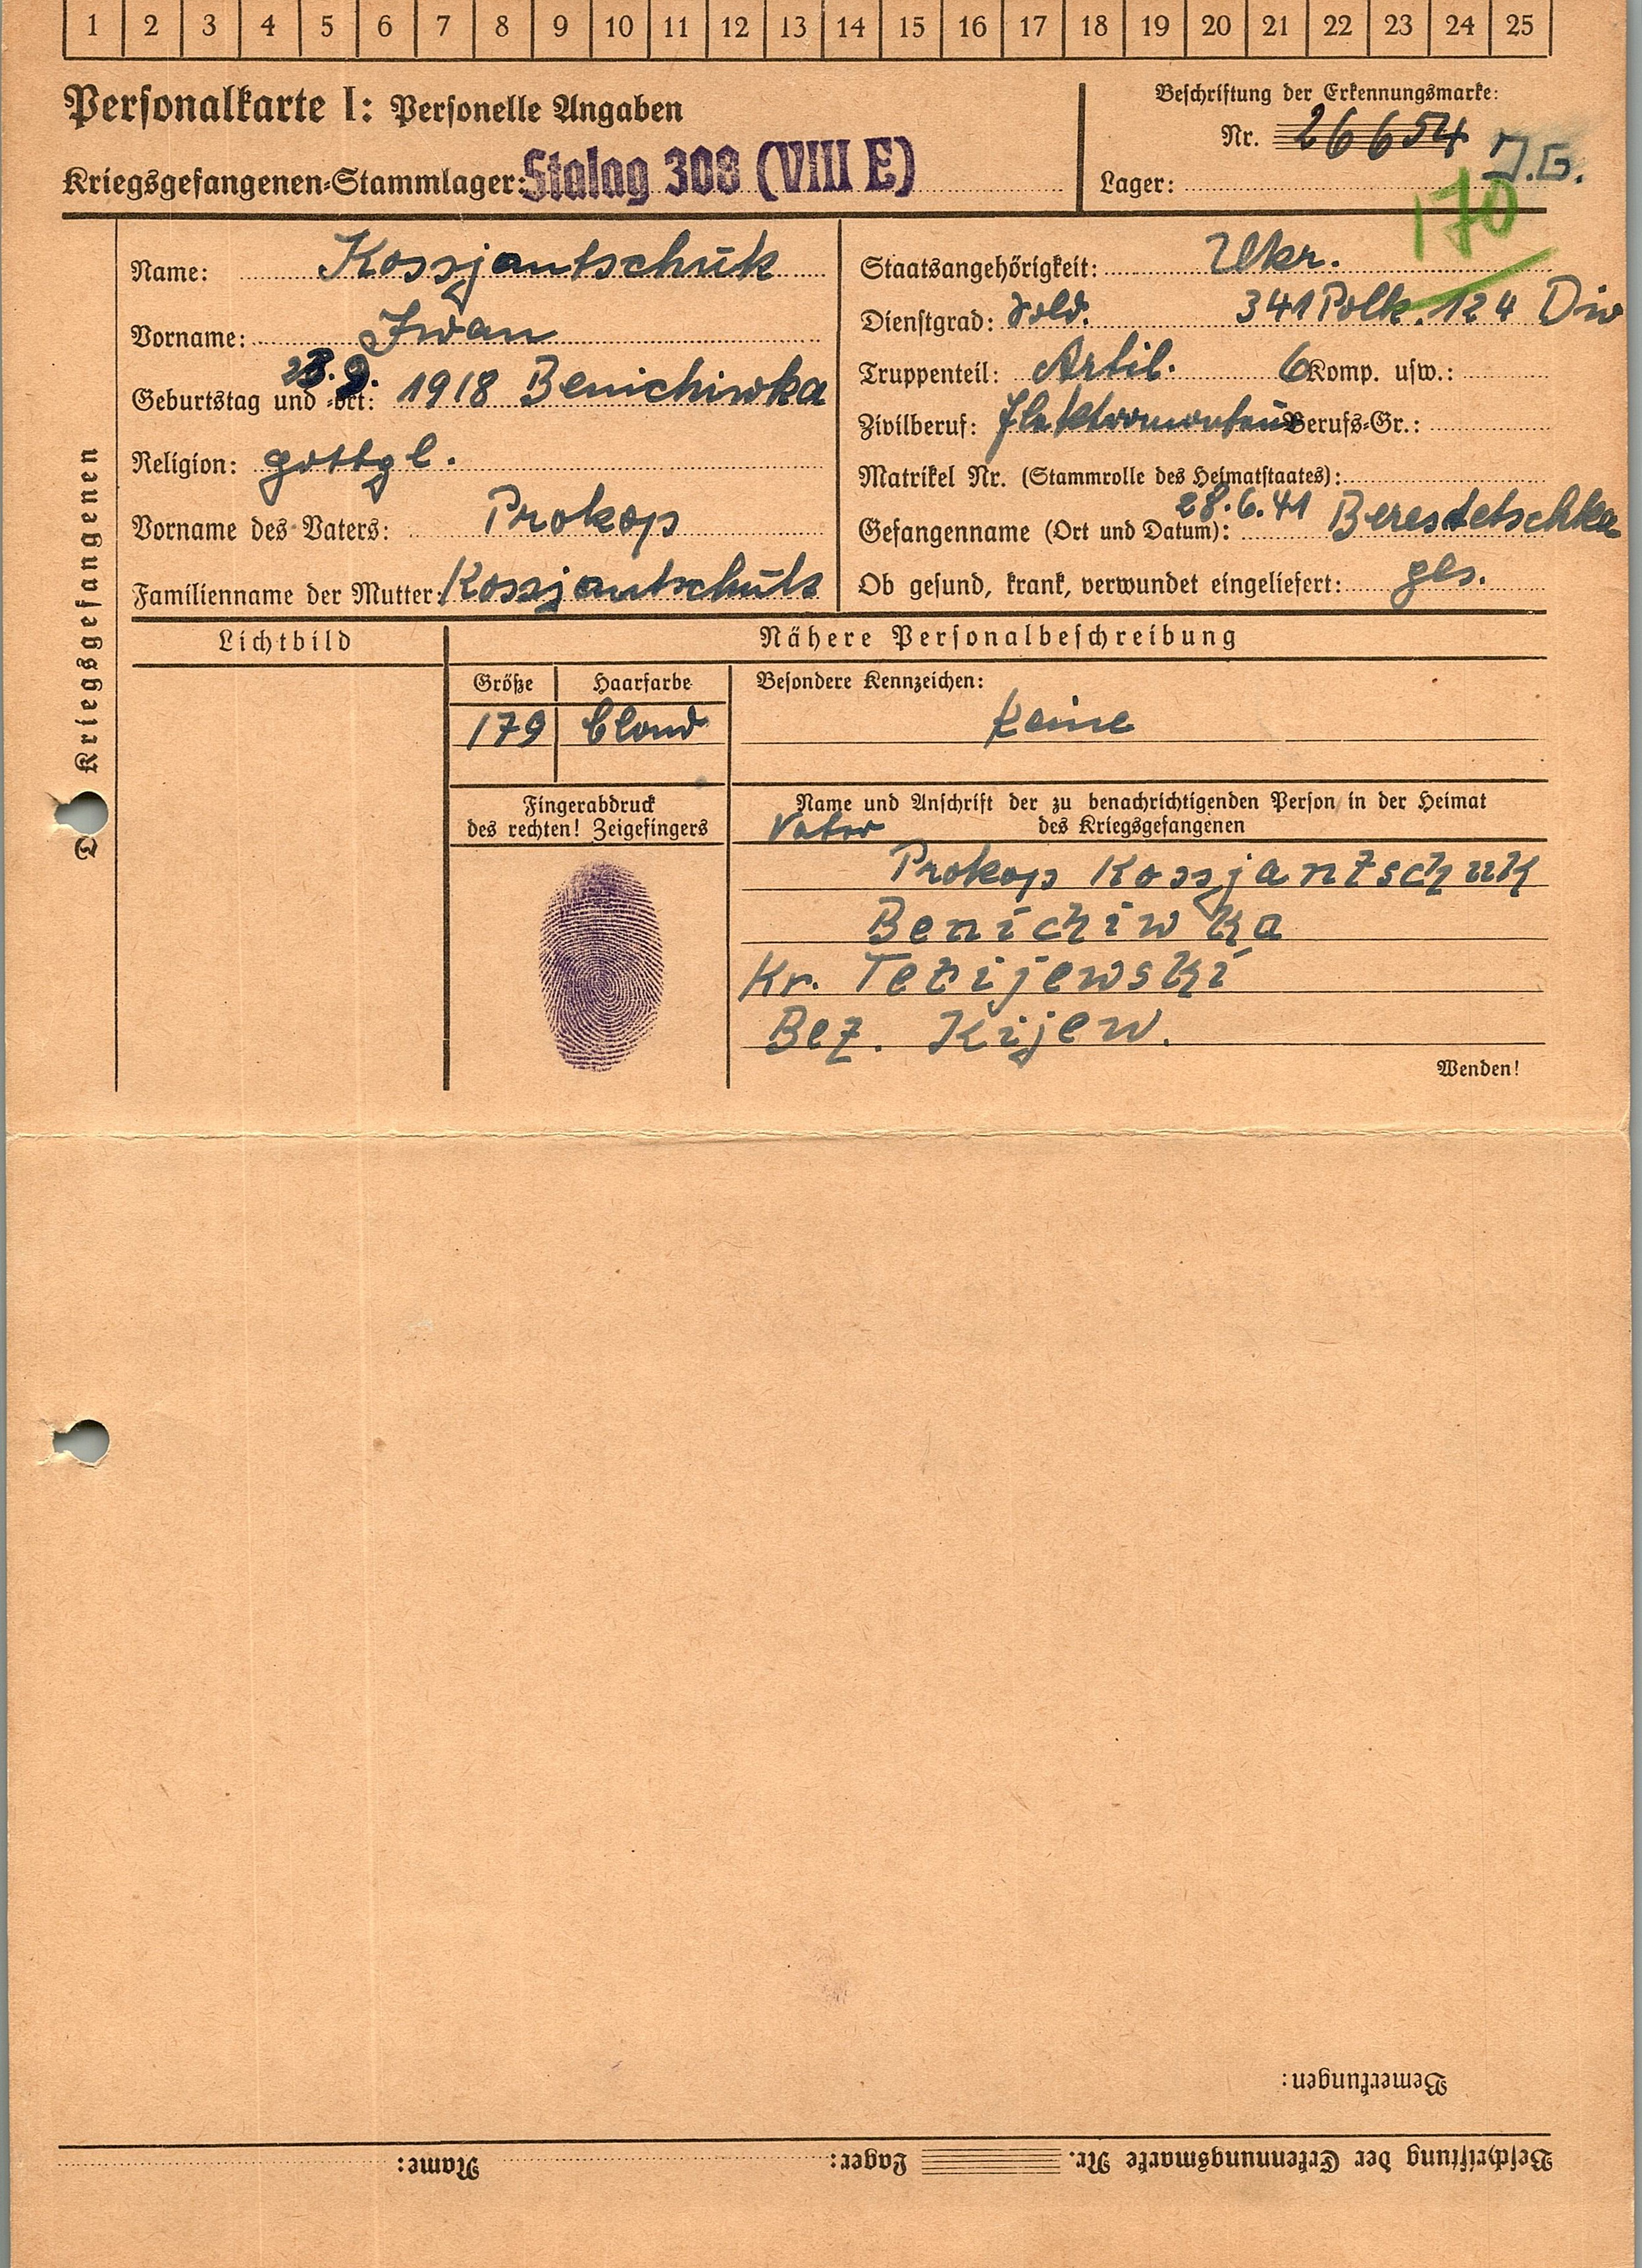 1 2 3 4 5 6 7 8 9 10 11 12 13 14 15 16 17 18 19 20 21 22 23 24 25
Personalkarte I: Personelle Angaben
Kriegsgefangenen-Stammlager: Stalag 308 (VIII E)
Beschriftung der Erkennungsmarke:
Nr. 26654
Lager:
170
Name: Kossjantschuk
Vorname: Iwan
Geburtstag und -ort: 1918 Benichiwka
Religion: gottgl.
Vorname des Vaters: Prokop
Familienname der Mutter: Kossjantschuk
Staatsangehörigkeit: Ukr.
Dienstgrad: Sold. 341 Polk. 124 Div
Truppenteil: Artil. 6 Komp. usw.:
Zivilberuf: Elektromonteur Berufs-Gr.:
Matrikel Nr. (Stammrolle des Heimatstaates):
Gefangenname (Ort und Datum): 28.6.41 Berestetschka
Ob gesund, krank, verwundet eingeliefert: ges.
Kriegsgefangenen
Lichtbild
Nähere Personalbeschreibung
Größe Haarfarbe Besondere Kennzeichen:
179 blond keine
Fingerabdruck
des rechten! Zeigefingers
Name und Anschrift der zu benachrichtigenden Person in der Heimat
des Kriegsgefangenen
Vater
Prokop Kossjantschuk
Benichiwka
Kr. Tetijewski
Bez. Kijew.
Wenden!
Bemerkungen:
Beschriftung der Erkennungsmarke Nr. Lager: Name: